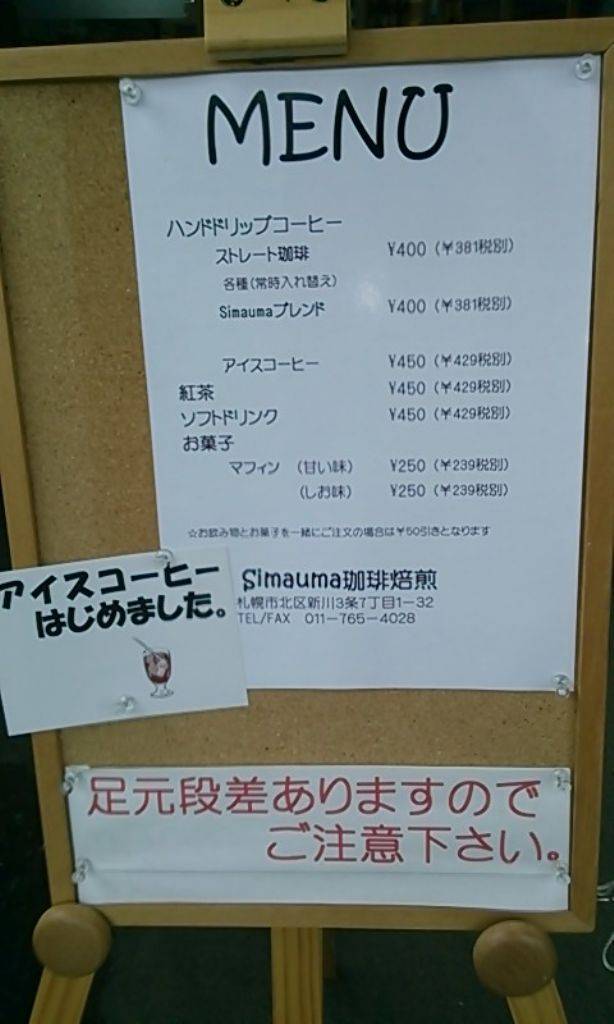 MENU
ハンドドリップコーヒー
ストレート珈琲 ¥400（￥381税別）
各種（常時入れ替え）
Simaumaブレンド ¥400（￥381税別）
アイスコーヒー ¥450（￥429税別）
紅茶 ¥450（￥429税別）
ソフトドリンク ¥450（￥429税別）
お菓子
マフィン （甘い味） ¥250（￥239税別）
（しお味） ¥250（￥239税別）
☆お飲み物とお菓子を一緒にご注文の場合は￥50引きとなります
Simauma珈琲焙煎
札幌市北区新川3条7丁目1－32
TEL/FAX 011－765－4028
アイスコーヒー
はじめました。
足元段差ありますので
ご注意下さい。